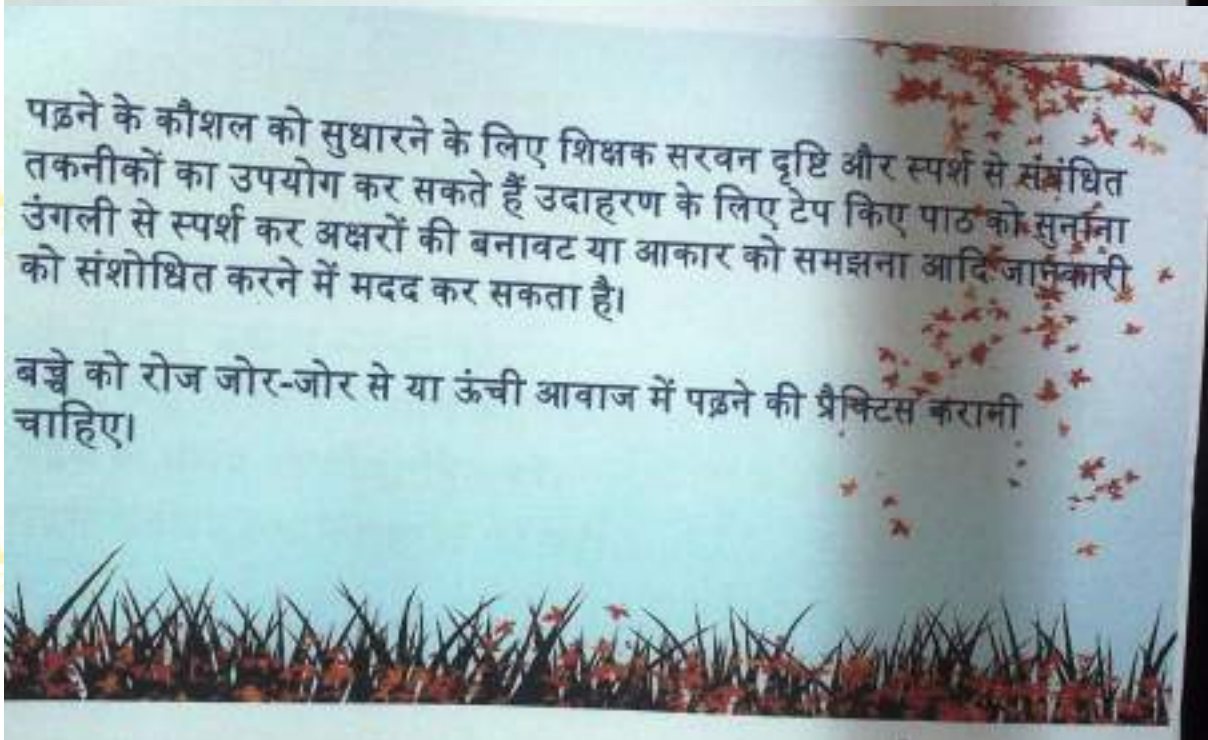 पढ़ने के कौशल को सुधारने के लिए शिक्षक सरवन दृष्टि और स्पर्श से संबंधित
तकनीकों का उपयोग कर सकते हैं उदाहरण के लिए टेप किए पाठ को सुनाना
उंगली से स्पर्श कर अक्षरों की बनावट या आकार को समझना आदि जानकारी
को संशोधित करने में मदद कर सकता है।
बच्चे को रोज जोर-जोर से या ऊंची आवाज में पढ़ने की प्रैक्टिस करानी
चाहिए।